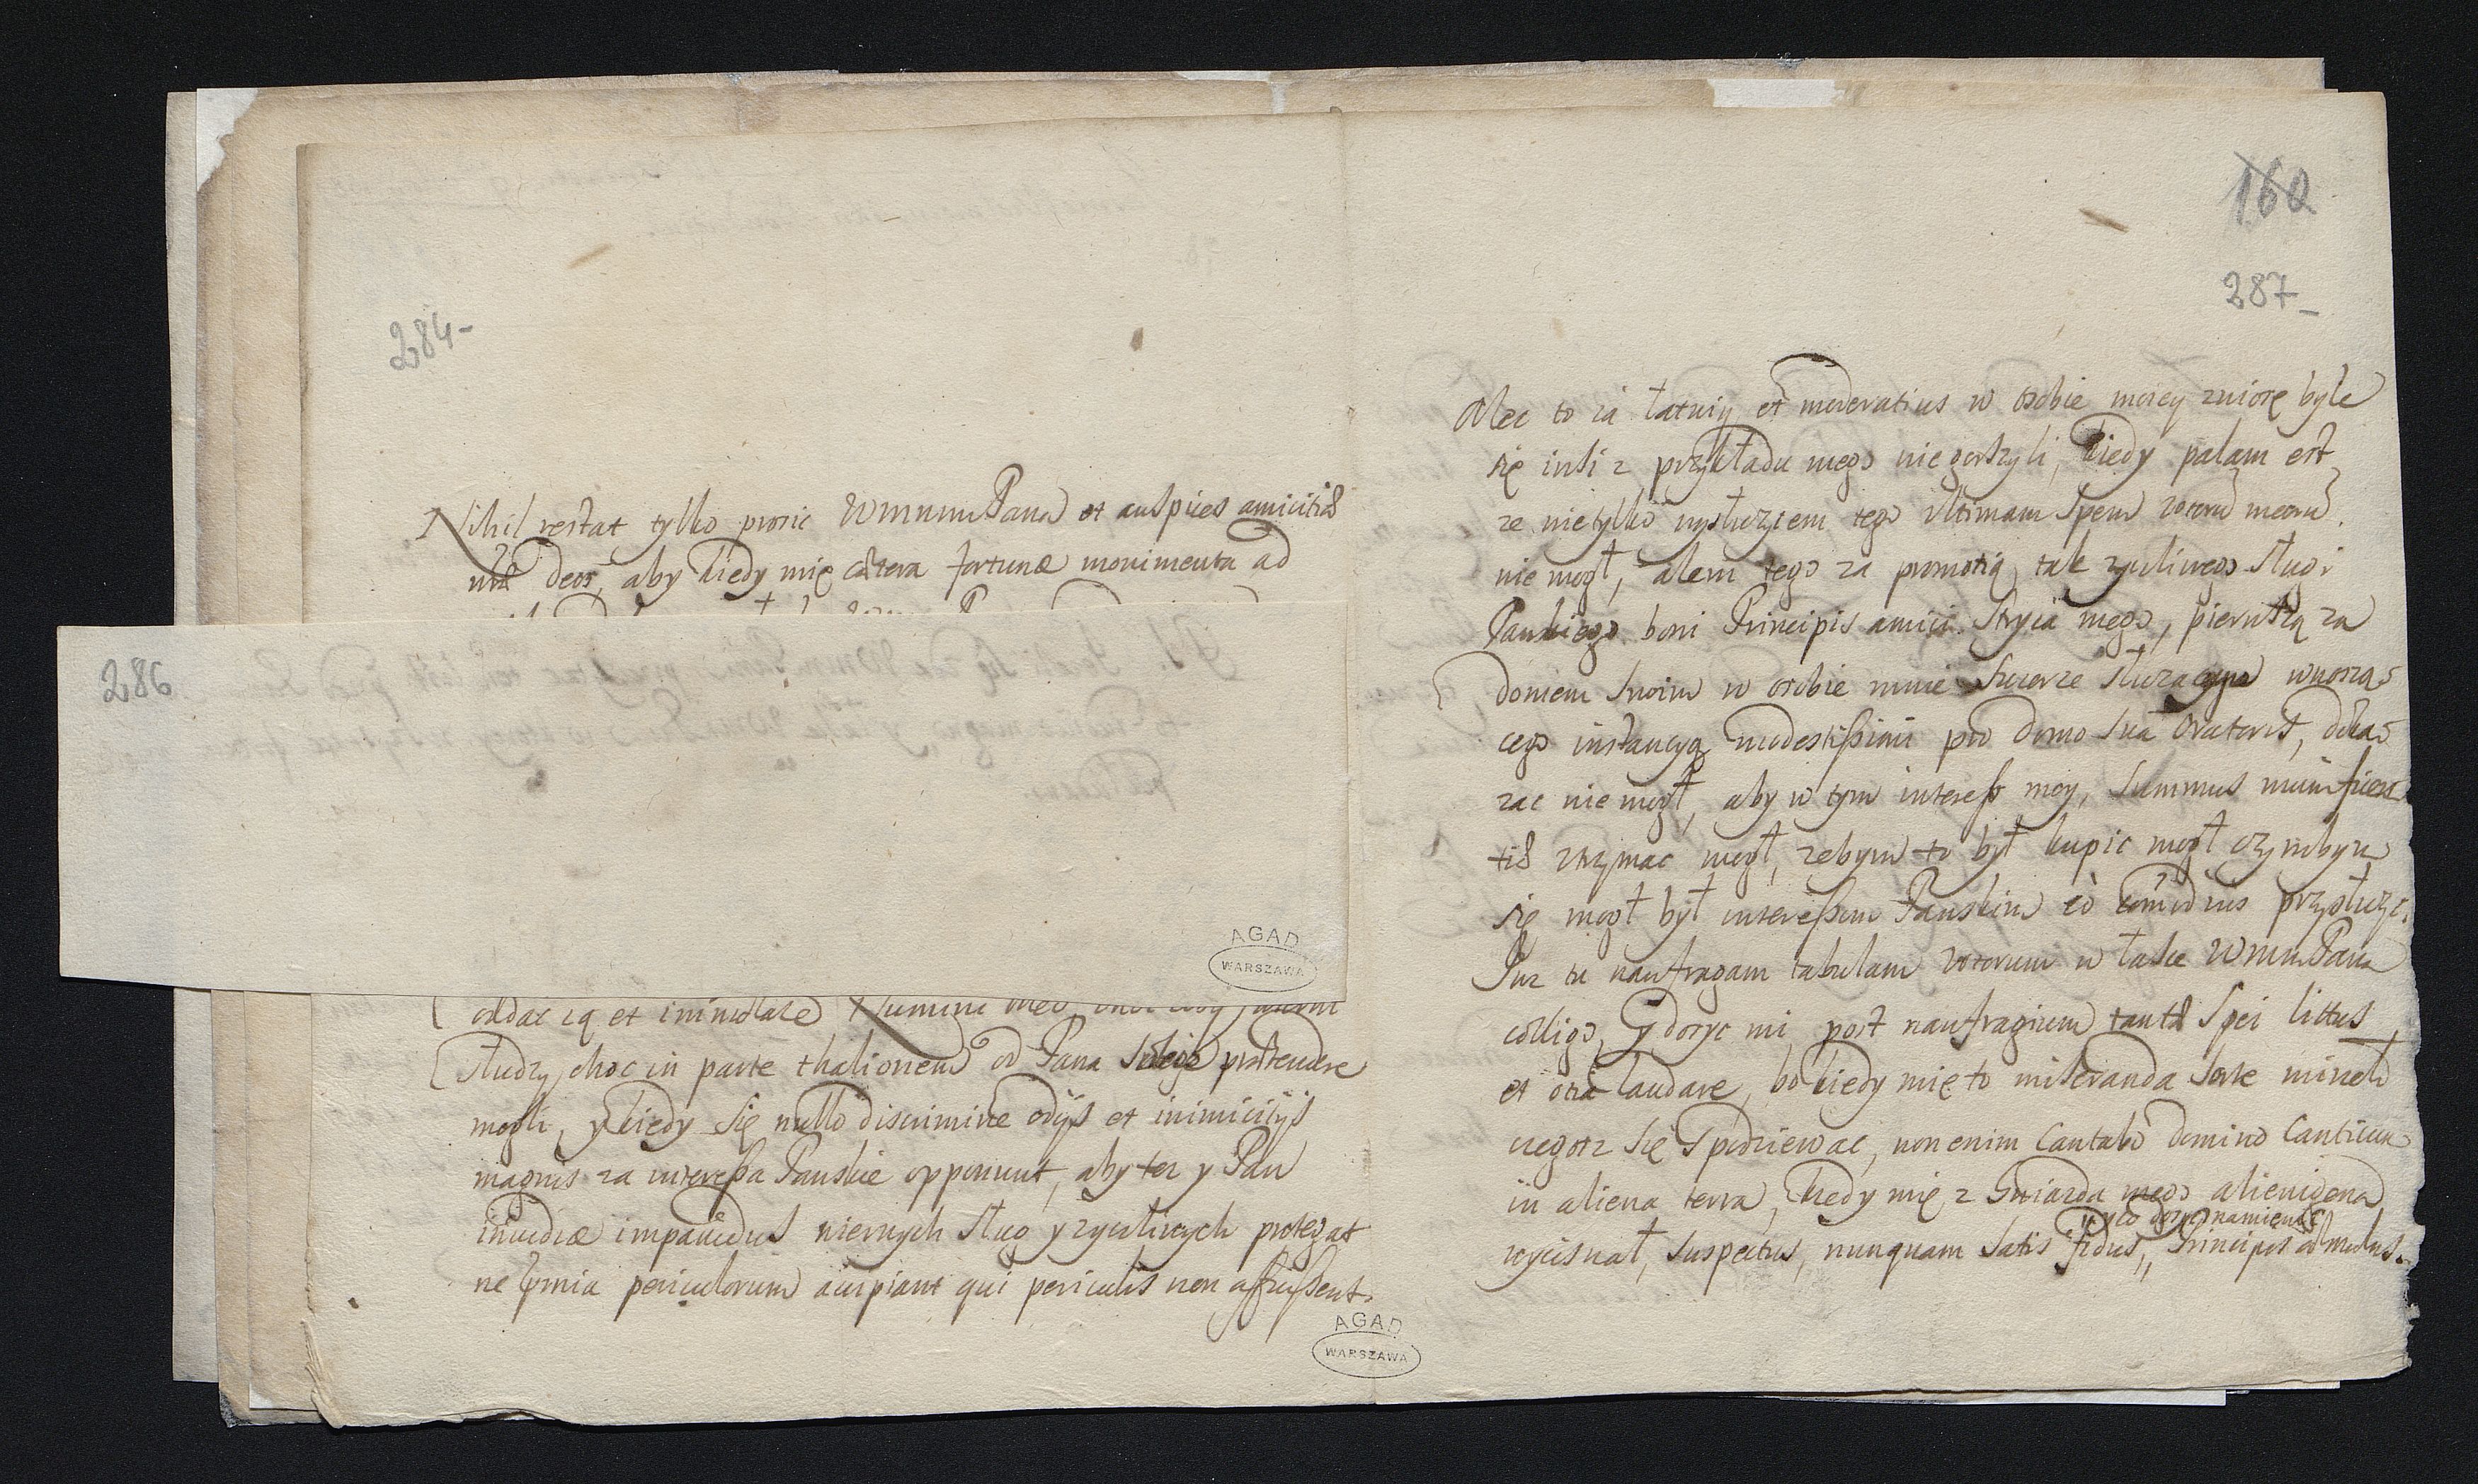 284-
Nihil restat tylko prosic WmmmPana et auspices amicitiæ
nræ deos, aby kiedy mię cætera fortunæ monimenta ad
286
AGAD
WARSZAWA
oddac ią et immolare Numini meo,
słudzy, choc in parte thalionem od Pana swego prætendere
mogli, y kiedy się nullo discrimine odijs et inimicitijs
magnis za interessa Panskie opponunt, aby tez y Pan
inuidiæ impauidus wiernych sług y zyczliwych protegat
ne præmia periculorum accipiant qui periculis non affuissent.
AGAD
WARSZAWA
160
287-
Alec to ia łatwiy et moderatius w osobie moiey zniosę byle
się insi z przykładu mego nie gorszyli, kiedy palam est
ze nie tylko wysłuzyc em tego vltimam spem votorũ meorũ
nie mogł, alem tego za promotią tak zyczliwego sługi
Panskiego boni Principis amici. Stryia mego, pierwszą za
domem swoim w osobie mnie szczerze słuzącym wnoszą-
cego instancyą modestissimi pro domo sua Oratoris, doka-
zac nie mogł, aby w tym interess moy, summus munificen-
tiæ trzymac mogł, zebym to był kupic mogł czymbym
się mogł był interessom Panskim eò com̃odius przysłuzyc.
Juz tu naufragam tabulam votorum w łasce WmmPana
colligo, y dosyc mi post naufragium tantæ spei littus
et ocia laudare, bo kiedy mię to miseranda sorte mineło
czegosz się spodziewac, non enim Cantabo domino Canticum
in aliena terra, kiedy mię z gniazda mego alienigena
wycisnał, suspectus, nunquam satis fidus, Principis